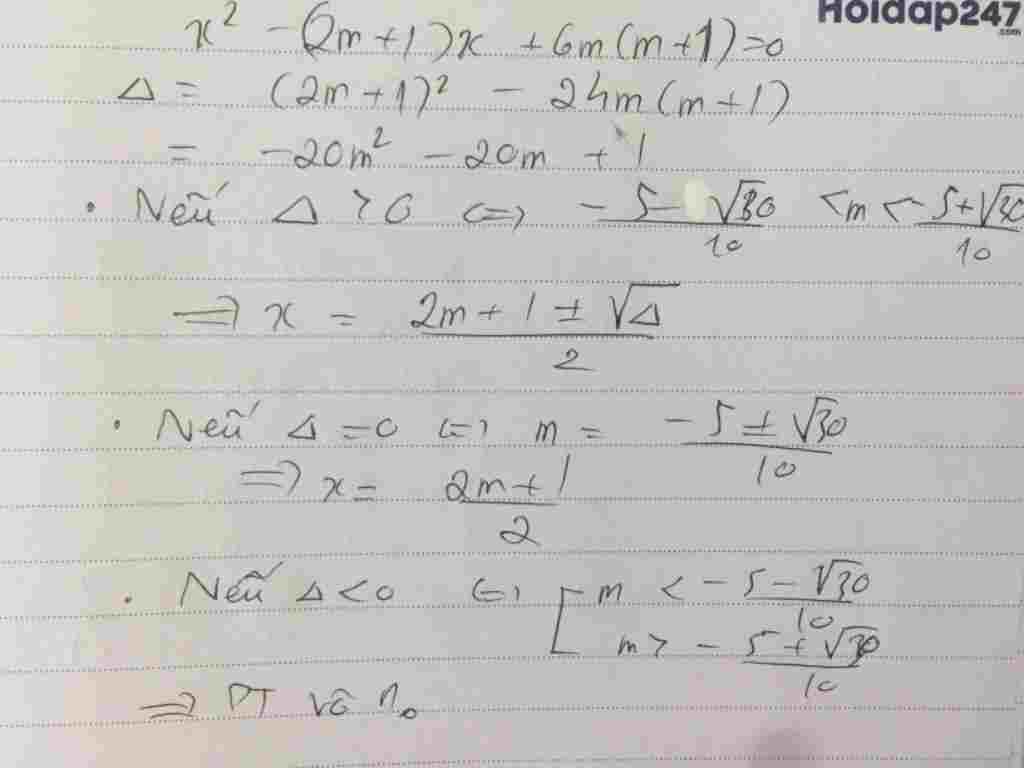 Hoidap247
.com
x² - (2m+1)x + 6m(m+1)=0
Δ = (2m+1)² - 24m(m+1)
= -20m² - 20m + 1
• Nếu Δ > 0 <=> (-5-√30)/10 < m < (-5+√30)/10
=> x = (2m+1±√Δ)/2
• Nếu Δ = 0 <=> m = (-5±√30)/10
=> x = (2m+1)/2
• Nếu Δ < 0 <=> [ m < (-5-√30)/10
m > (-5+√30)/10
=> PT vô n0